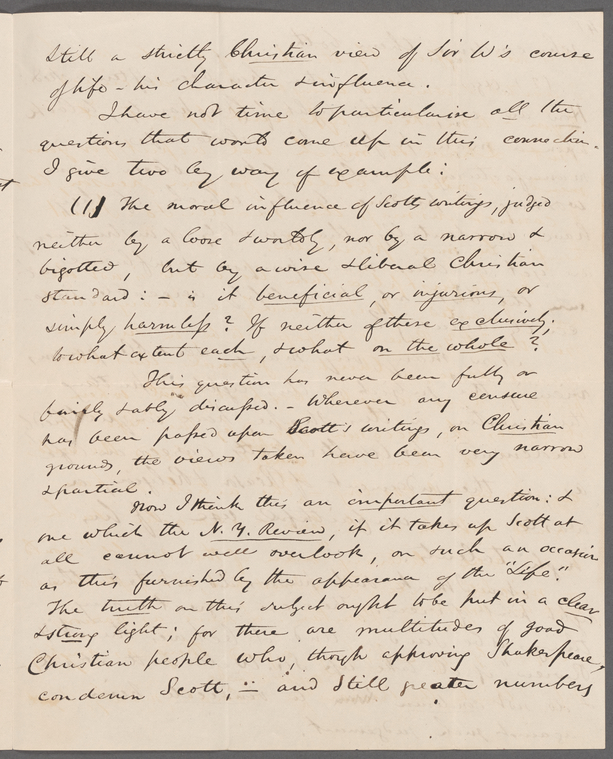 Still a strictly Christian view of Sir W's course
of life - his character & influence.
I have not time to particularise all the
questions that would come up in this connection.
I give two by way of example:
(1) The moral influence of Scott's writings, judged
neither by a loose & worldly, nor by a narrow &
bigotted, but by a wise & liberal Christian
standard: - is it beneficial, or injurious, or
simply harmless? If neither of these exclusively,
to what extent each, & what on the whole?
This question has never been fully or
fairly & ably discussed. - Wherever any censure
has been passed upon Scott's writings, on Christian
grounds, the views taken have been very narrow
& partial.
Now I think this an important question: &
one which the N. Y. Review, if it takes up Scott at
all cannot well overlook, on such an occasion
as this furnished by the appearance of the "Life".
The truth on this subject ought to be put in a clear
& strong light; for there are multitudes of good
Christian people who, though approving Shakespeare,
condemn Scott, - and still greater numbers